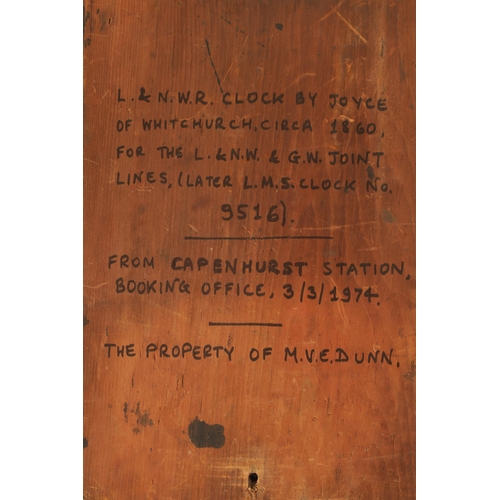 L. & N.W.R. CLOCK BY JOYCE
OF WHITCHURCH, CIRCA 1860,
FOR THE L. & N.W. & G.W. JOINT
LINES, (LATER L.M.S. CLOCK No.
9516).
FROM CAPENHURST STATION,
BOOKING OFFICE, 3/3/1974.
THE PROPERTY OF M.V.E. DUNN.